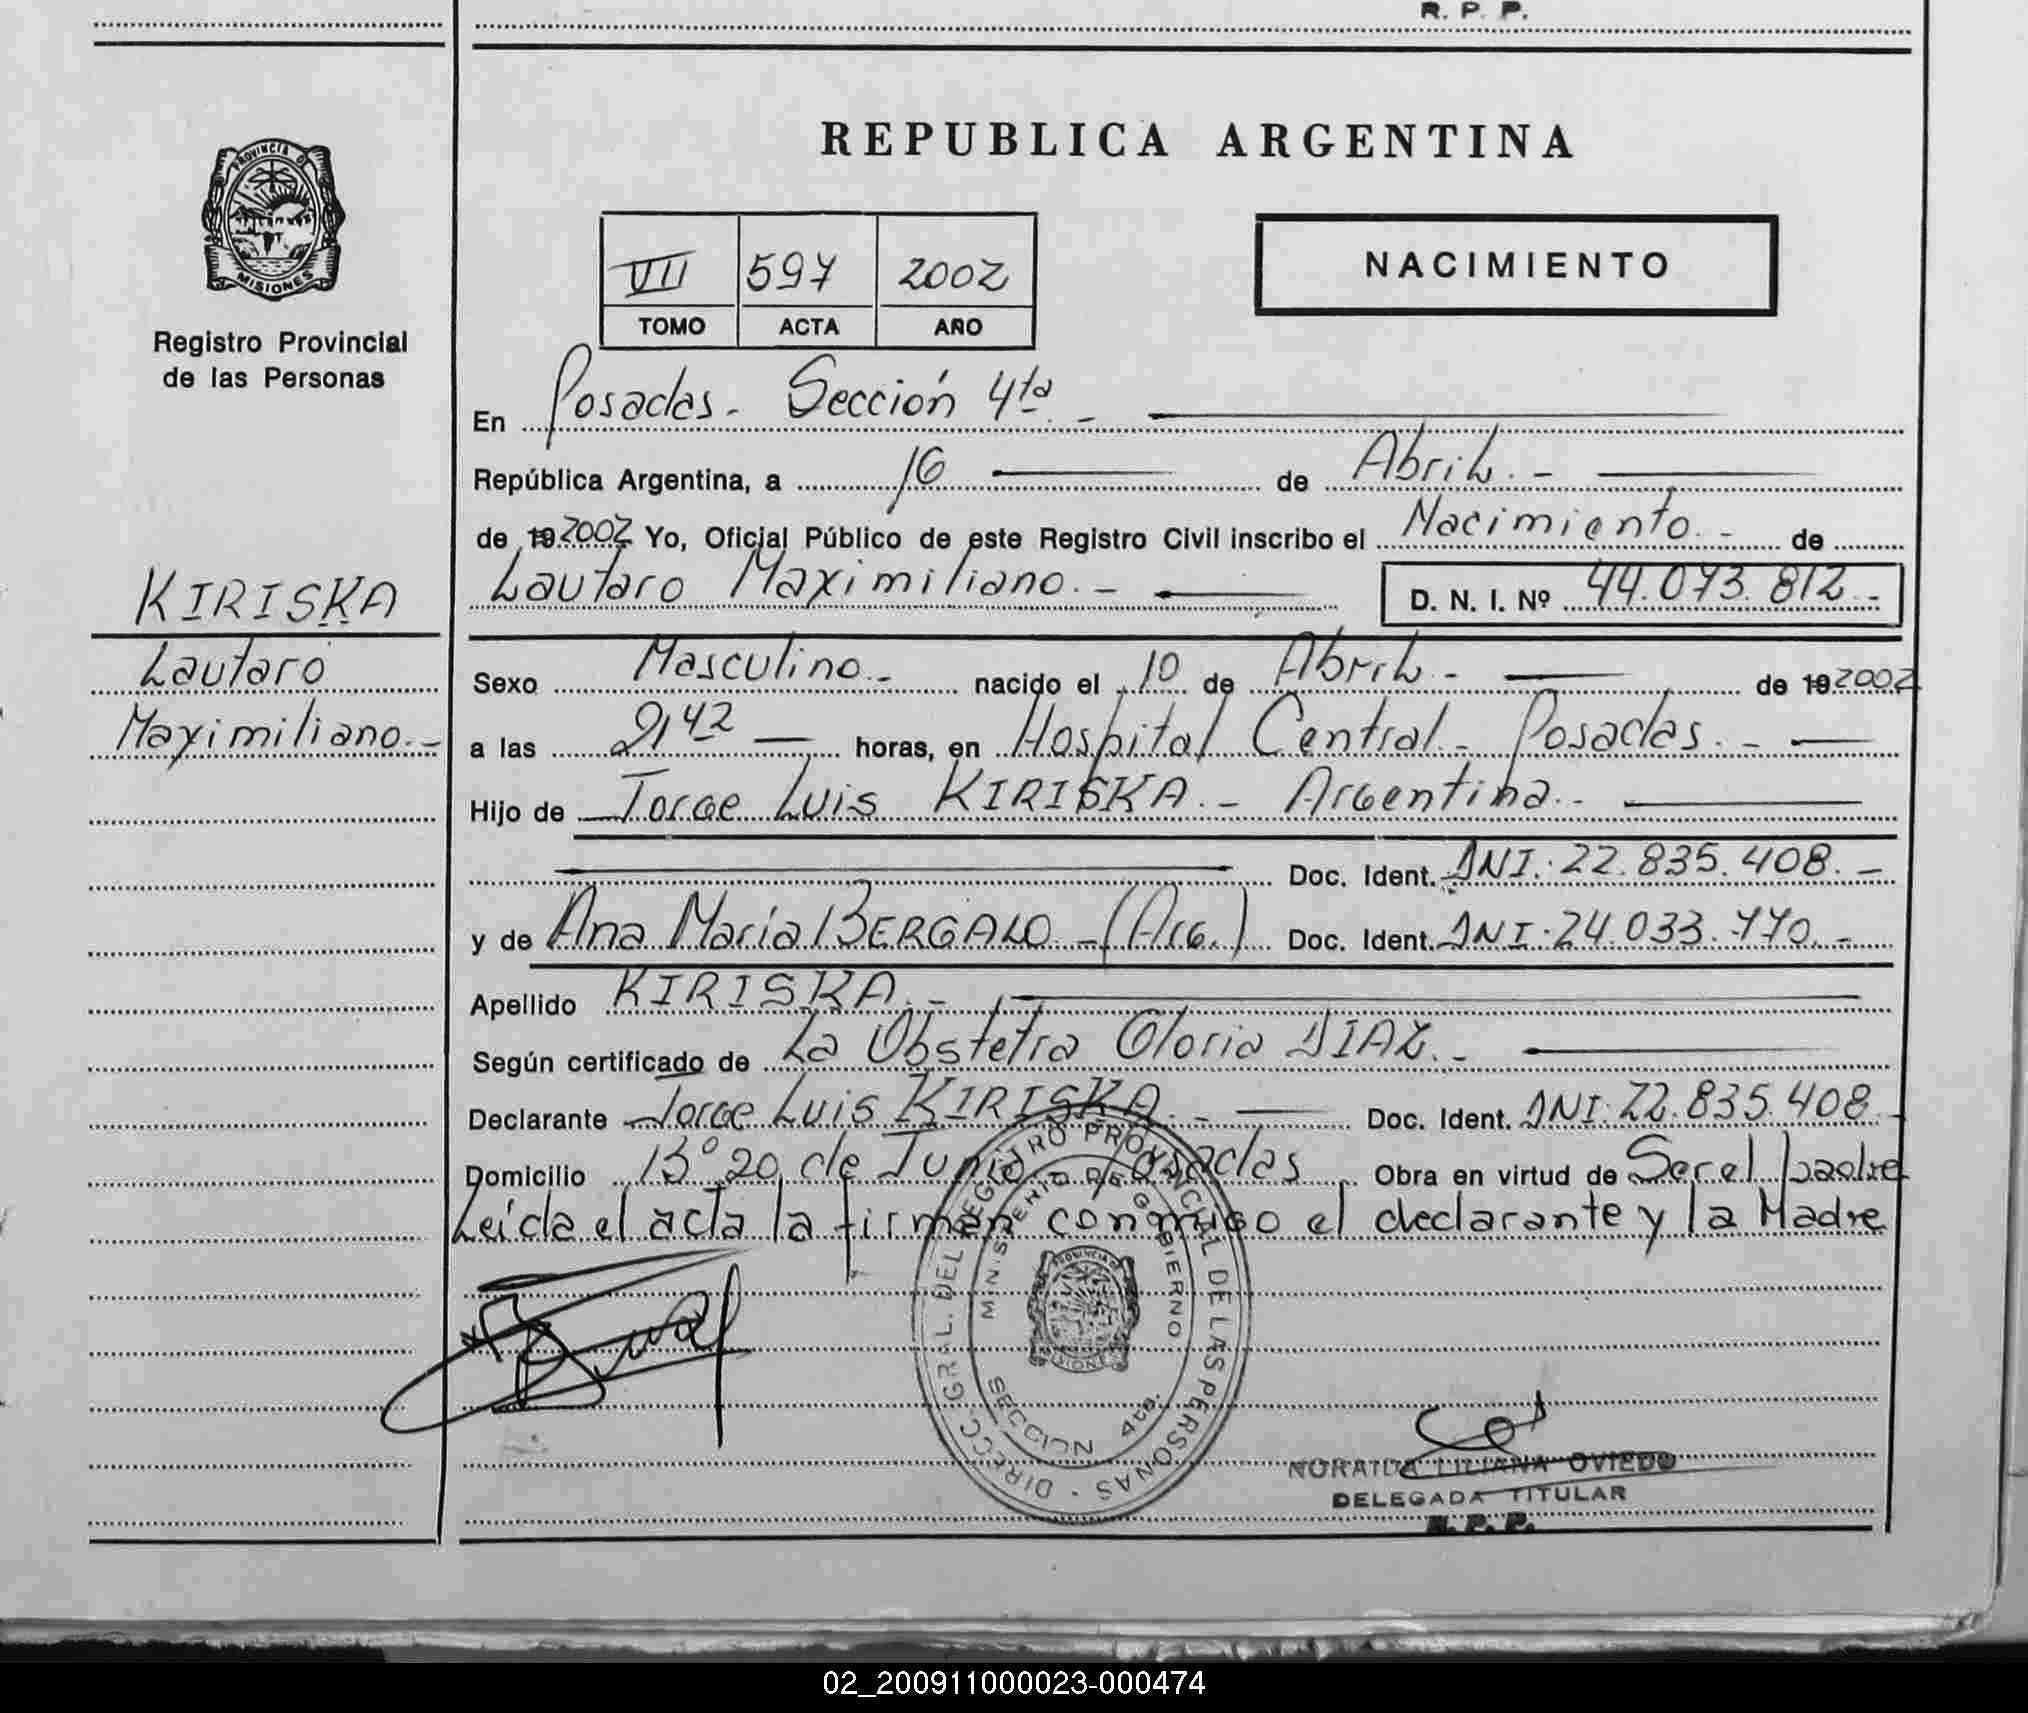 R. P. P.
PROVINCIA DE
MISIONES
Registro Provincial
de las Personas
KIRISKA
Lautaro
Maximiliano.-
REPUBLICA ARGENTINA
VII 597 2002
TOMO ACTA AÑO
NACIMIENTO
En Posadas. Sección 4ta.-
República Argentina, a 16 de Abril.-
de 19 2002 Yo, Oficial Público de este Registro Civil inscribo el Nacimiento.- de
Lautaro Maximiliano.- D. N. I. Nº 44.073.812.-
Sexo Masculino.- nacido el 10 de Abril.- de 19 2002
a las 21,42 horas, en Hospital Central. Posadas.-
Hijo de Jorge Luis KIRISKA.- Argentina.-
Doc. Ident. DNI: 22.835.408.-
y de Ana María BERGALO.-(Arg.) Doc. Ident. DNI: 24.033.770.-
Apellido KIRISKA.-
Según certificado de La Obstetra Gloria DIAZ.-
Declarante Jorge Luis KIRISKA.- Doc. Ident. DNI: 22.835.408.-
Domicilio Bº 20 de Junio. Posadas Obra en virtud de Ser el padre
Leída el acta la firman conmigo el declarante y la Madre
DIRECC. GRAL. DEL REGISTRO PROVINCIAL DE LAS PERSONAS
MINISTERIO DE GOBIERNO
SECCION 4ta.
NORAIDA LILIANA OVIEDO
DELEGADA TITULAR
R. P. P.
02_200911000023-000474